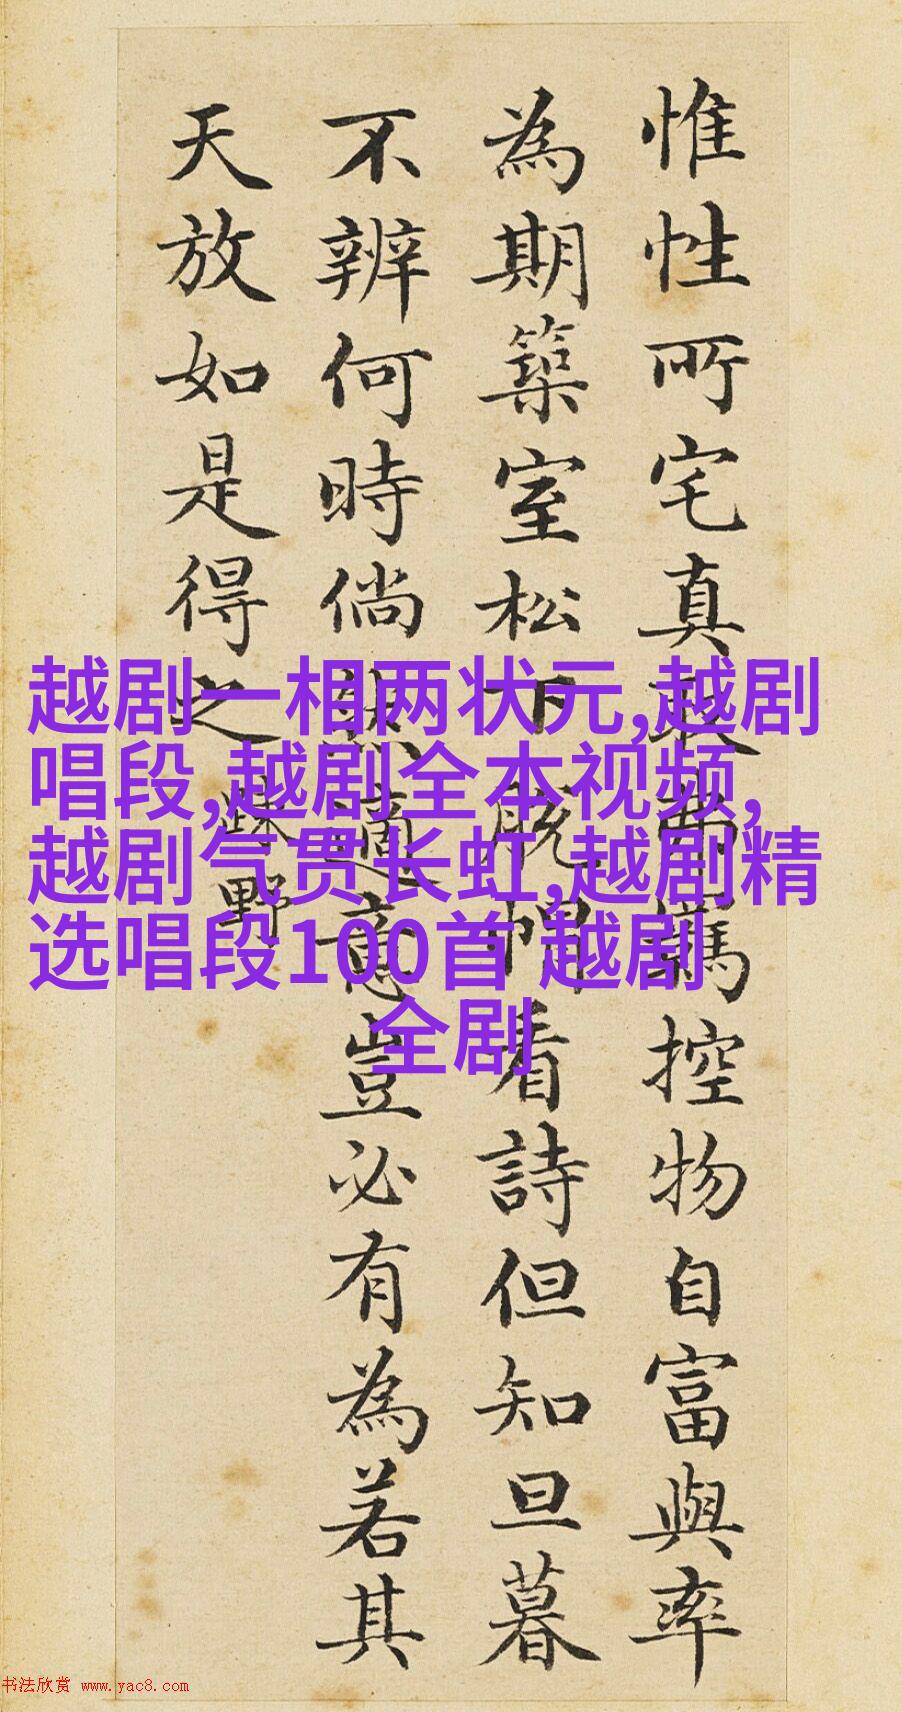 惟性所宅真取控物自富與率
為期築室松下脫帽看詩但知旦暮
不辨何時倘然適意豈必有為若其
天放如是得之
疎野
越剧一相两状元,越剧
唱段,越剧全本视频,
越剧气贯长虹,越剧精
选唱段100首 越剧
全剧
书法欣赏 www.yac8.com